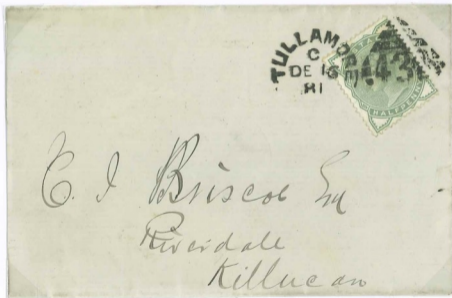 TULLAMORE
C
DE 16
81
443
HALFPENNY
C. J. Briscoe Esq
Riverdale
Killucan